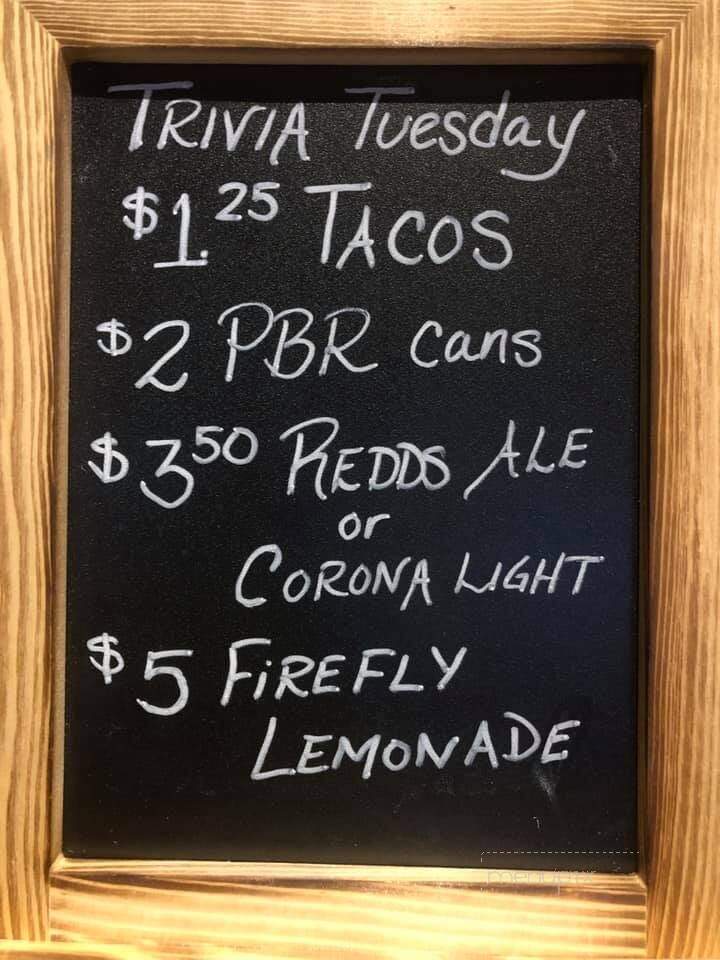 TRIVIA Tuesday
$1.25 TACOS
$2 PBR cans
$3 50 REDDS ALE
or
CORONA LIGHT
$5 FIREFLY
LEMONADE